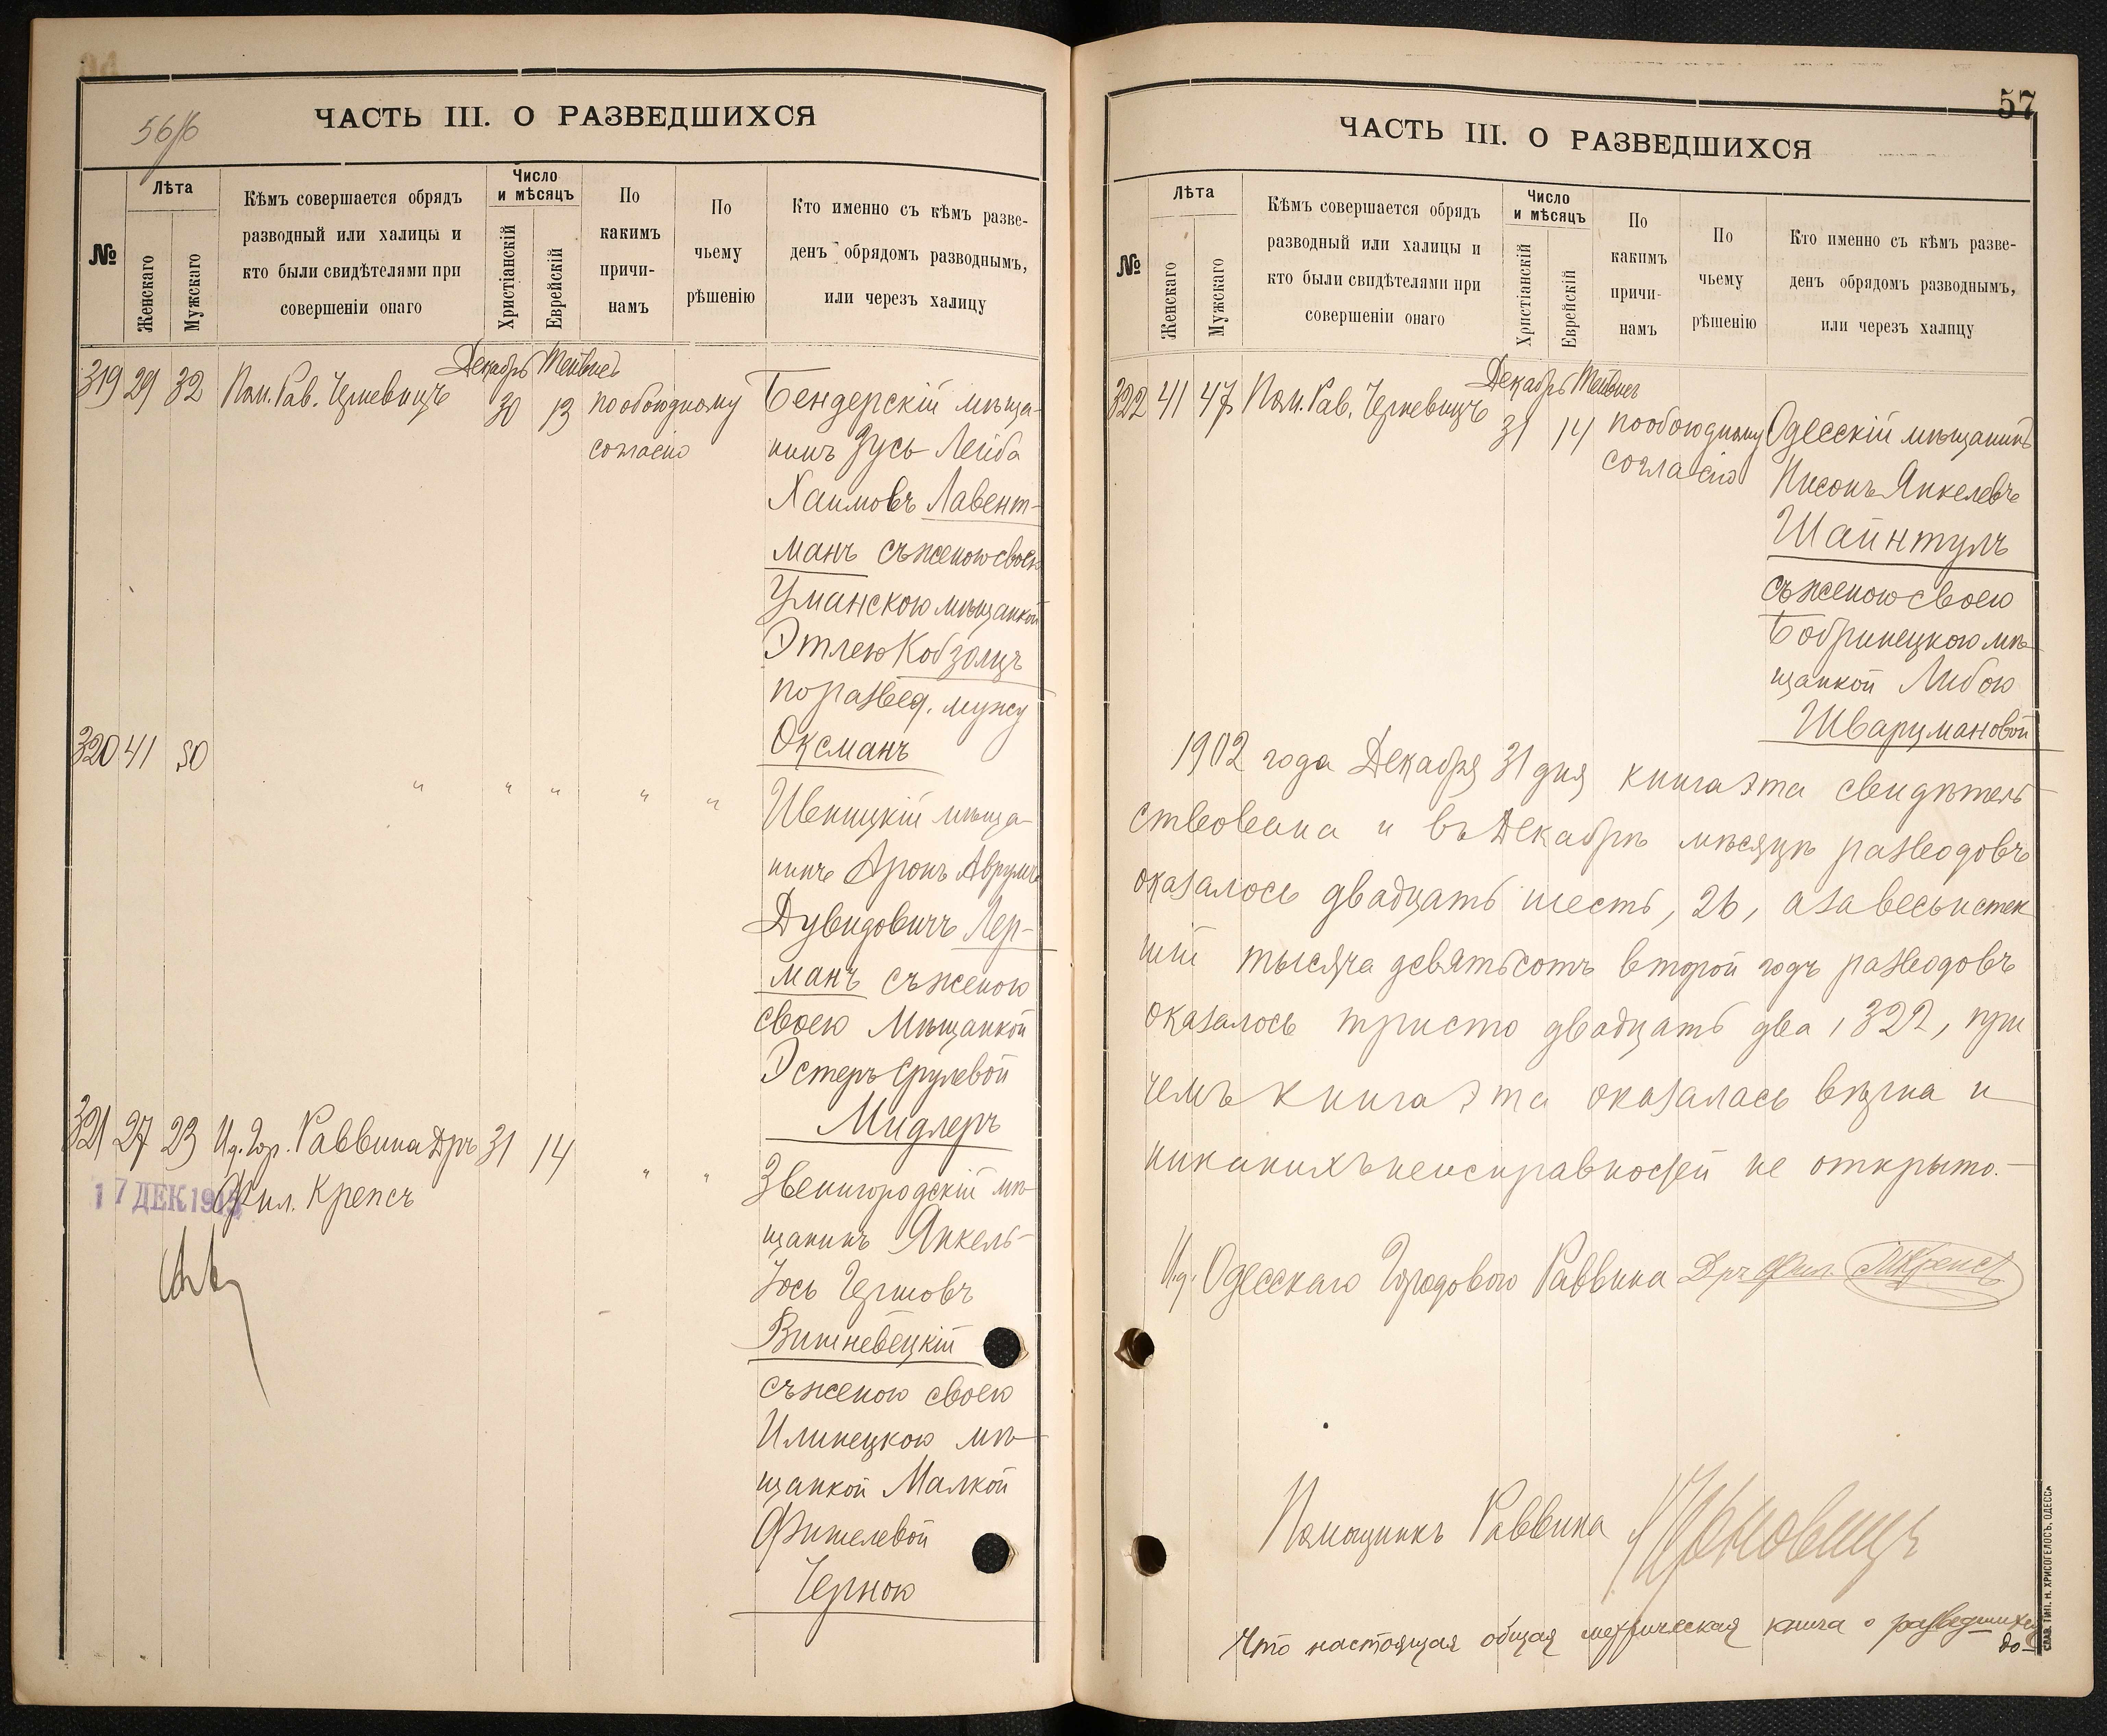 56/б
ЧАСТЬ III. О РАЗВЕДШИХСЯ
№
Лѣта
Женскаго
Мужскаго
Кѣмъ совершается обрядъ
разводный или халицы и
кто были свидѣтелями при
совершеніи онаго
Число
и мѣсяцъ
Христіанскій
Еврейскій
По
какимъ
причи-
намъ
По
чьему
рѣшенію
Кто именно съ кѣмъ разве-
денъ обрядомъ разводнымъ,
или черезъ халицу
Декабрь Тейвесъ
319 29 32 Пом. Рав. 30 13 по обоюдному
согласію
Бендерскій мѣща-
нинъ Зусь Лейба
Хаимовъ Лавент-
манъ съ женою своею
Уманскою мѣщанкой
Этлею Кобзолцъ
по развед. мужу
Оксманъ
320 41 50 " " " " "
мѣща-
нинъ Аронъ Аврумъ
Дувидовичъ Лер-
манъ съ женою
своею Мѣщанкой
Эстеръ Срулевой
Мидлеръ
321 27 23 И.д. Гор. Раввина Дръ 31 14 " "
Фил. Крепсъ
17 ДЕК 191
Звенигородскій мѣ-
щанинъ Янкель-
Іось Гершовъ
Вишневецкій
съ женою своею
Илинецкою мѣ-
щанкой Малкой
Фишелевой
Черною
57
ЧАСТЬ III. О РАЗВЕДШИХСЯ
№
Лѣта
Женскаго
Мужскаго
Кѣмъ совершается обрядъ
разводный или халицы и
кто были свидѣтелями при
совершеніи онаго
Число
и мѣсяцъ
Христіанскій
Еврейскій
По
какимъ
причи-
намъ
По
чьему
рѣшенію
Кто именно съ кѣмъ разве-
денъ обрядомъ разводнымъ,
или черезъ халицу
Декабрь Тейвесъ
322 41 47 Пом. Рав. 31 14 по обоюдному
согласію
Одесскій мѣщанинъ
Нисонъ Янкелевъ
Шайнтулъ
съ женою своею
Бобринецкою мѣ-
щанкой Либою
Шварцмановой
1902 года Декабря 31 дня книга эта свидѣтель-
ствована и въ Декабрѣ мѣсяцѣ разводовъ
оказалось двадцать шесть, 26, а за весь истек
шій тысяча девятьсотъ второй годъ разводовъ
оказалось тристо двадцать два, 322, при
чемъ книга эта оказалась вѣрна и
никакихъ неисправностей не открыто.
И.д. Одесскаго Городового Раввина Дръ Фил. Крепсъ
Помощникъ Раввина
Что настоящая общая метрическая книга о разведшихся
до-
СЛАВ. ТИП. Н. ХРИСОГЕЛОСЪ, ОДЕССА